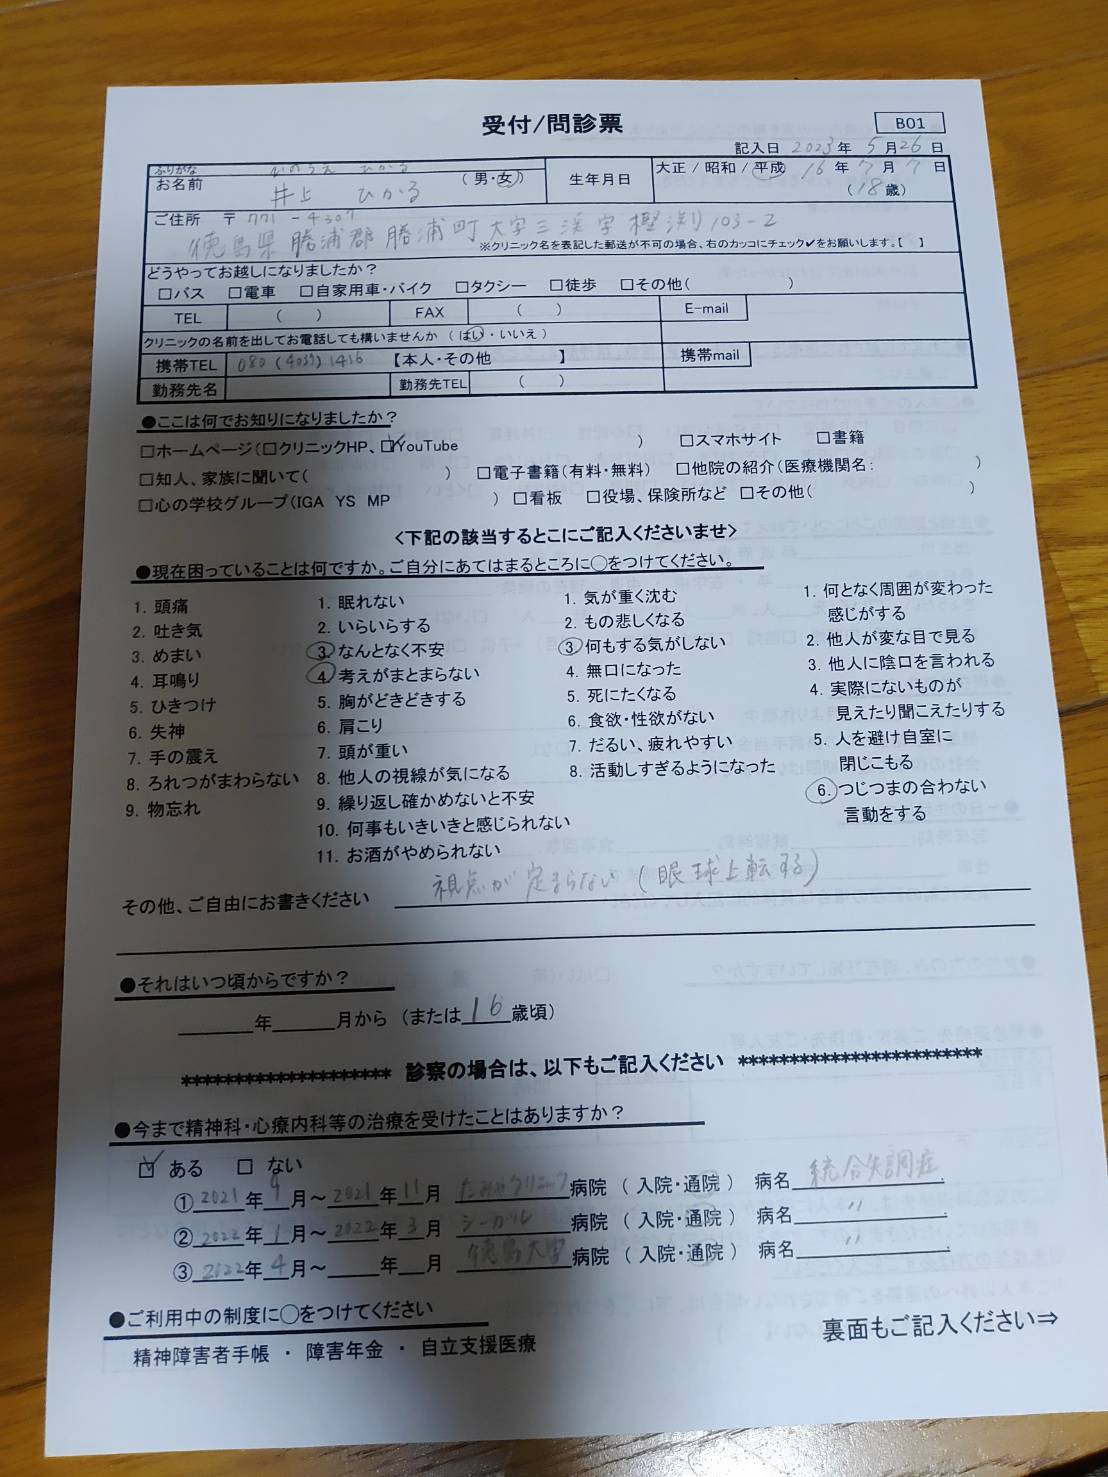 受付/問診票
B01
記入日 2023年 5月26日
ふりがな いのうえ ひかる
お名前 井上 ひかる (男・女)
生年月日
大正 / 昭和 / 平成 16年 7月 7日
(18歳)
ご住所 〒771-4307
徳島県勝浦郡勝浦町大字三渓字樫渕103-2
※クリニック名を表記した郵送が不可の場合、右のカッコにチェック✔をお願いします。【 】
どうやってお越しになりましたか?
□バス □電車 □自家用車・バイク □タクシー □徒歩 □その他( )
TEL ( ) FAX ( ) E-mail
クリニックの名前を出してお電話しても構いませんか ( はい・いいえ )
携帯TEL 080 (4037) 1416 【本人・その他 】 携帯mail
勤務先名 勤務先TEL ( )
●ここは何でお知りになりましたか?
□ホームページ(□クリニックHP、☑YouTube ) □スマホサイト □書籍
□知人、家族に聞いて( ) □電子書籍(有料・無料) □他院の紹介(医療機関名: )
□心の学校グループ(IGA YS MP ) □看板 □役場、保険所など □その他( )
<下記の該当するとこにご記入くださいませ>
●現在困っていることは何ですか。ご自分にあてはまるところに○をつけてください。
1. 頭痛
2. 吐き気
3. めまい
4. 耳鳴り
5. ひきつけ
6. 失神
7. 手の震え
8. ろれつがまわらない
9. 物忘れ
1. 眠れない
2. いらいらする
3. なんとなく不安
4. 考えがまとまらない
5. 胸がどきどきする
6. 肩こり
7. 頭が重い
8. 他人の視線が気になる
9. 繰り返し確かめないと不安
10. 何事もいきいきと感じられない
11. お酒がやめられない
1. 気が重く沈む
2. もの悲しくなる
3. 何もする気がしない
4. 無口になった
5. 死にたくなる
6. 食欲・性欲がない
7. だるい、疲れやすい
8. 活動しすぎるようになった
1. 何となく周囲が変わった
感じがする
2. 他人が変な目で見る
3. 他人に陰口を言われる
4. 実際にないものが
見えたり聞こえたりする
5. 人を避け自室に
閉じこもる
6. つじつまの合わない
言動をする
その他、ご自由にお書きください 視点が定まらない (眼球上転する)
●それはいつ頃からですか?
年 月から (または 16 歳頃)
******************** 診察の場合は、以下もご記入ください ***********************
●今まで精神科・心療内科等の治療を受けたことはありますか?
☑ ある □ ない
① 2021年 9月～2021年 11月 たみやクリニック 病院 ( 入院・通院 ) 病名 統合失調症.
② 2022年 1月～2022年 3月 シーガル 病院 ( 入院・通院 ) 病名 〃 .
③ 2022年 4月～ 年 月 徳島大学 病院 ( 入院・通院 ) 病名 〃 .
●ご利用中の制度に○をつけてください
精神障害者手帳 ・ 障害年金 ・ 自立支援医療
裏面もご記入ください⇒